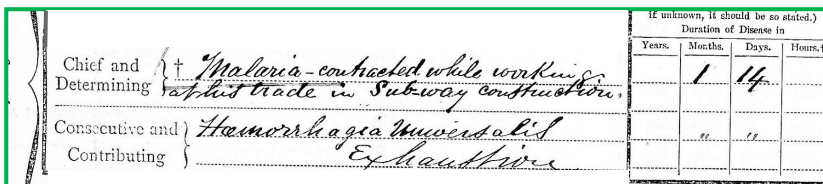 if unknown, it should be so stated.)
Duration of Disease in
Years. Months. Days. Hours.†
Chief and Determining { † Malaria - contracted while working 1 14
at his trade in Sub-way construction.
Consecutive and Contributing } Hæmorrhagia Universalis " "
Exhaustion